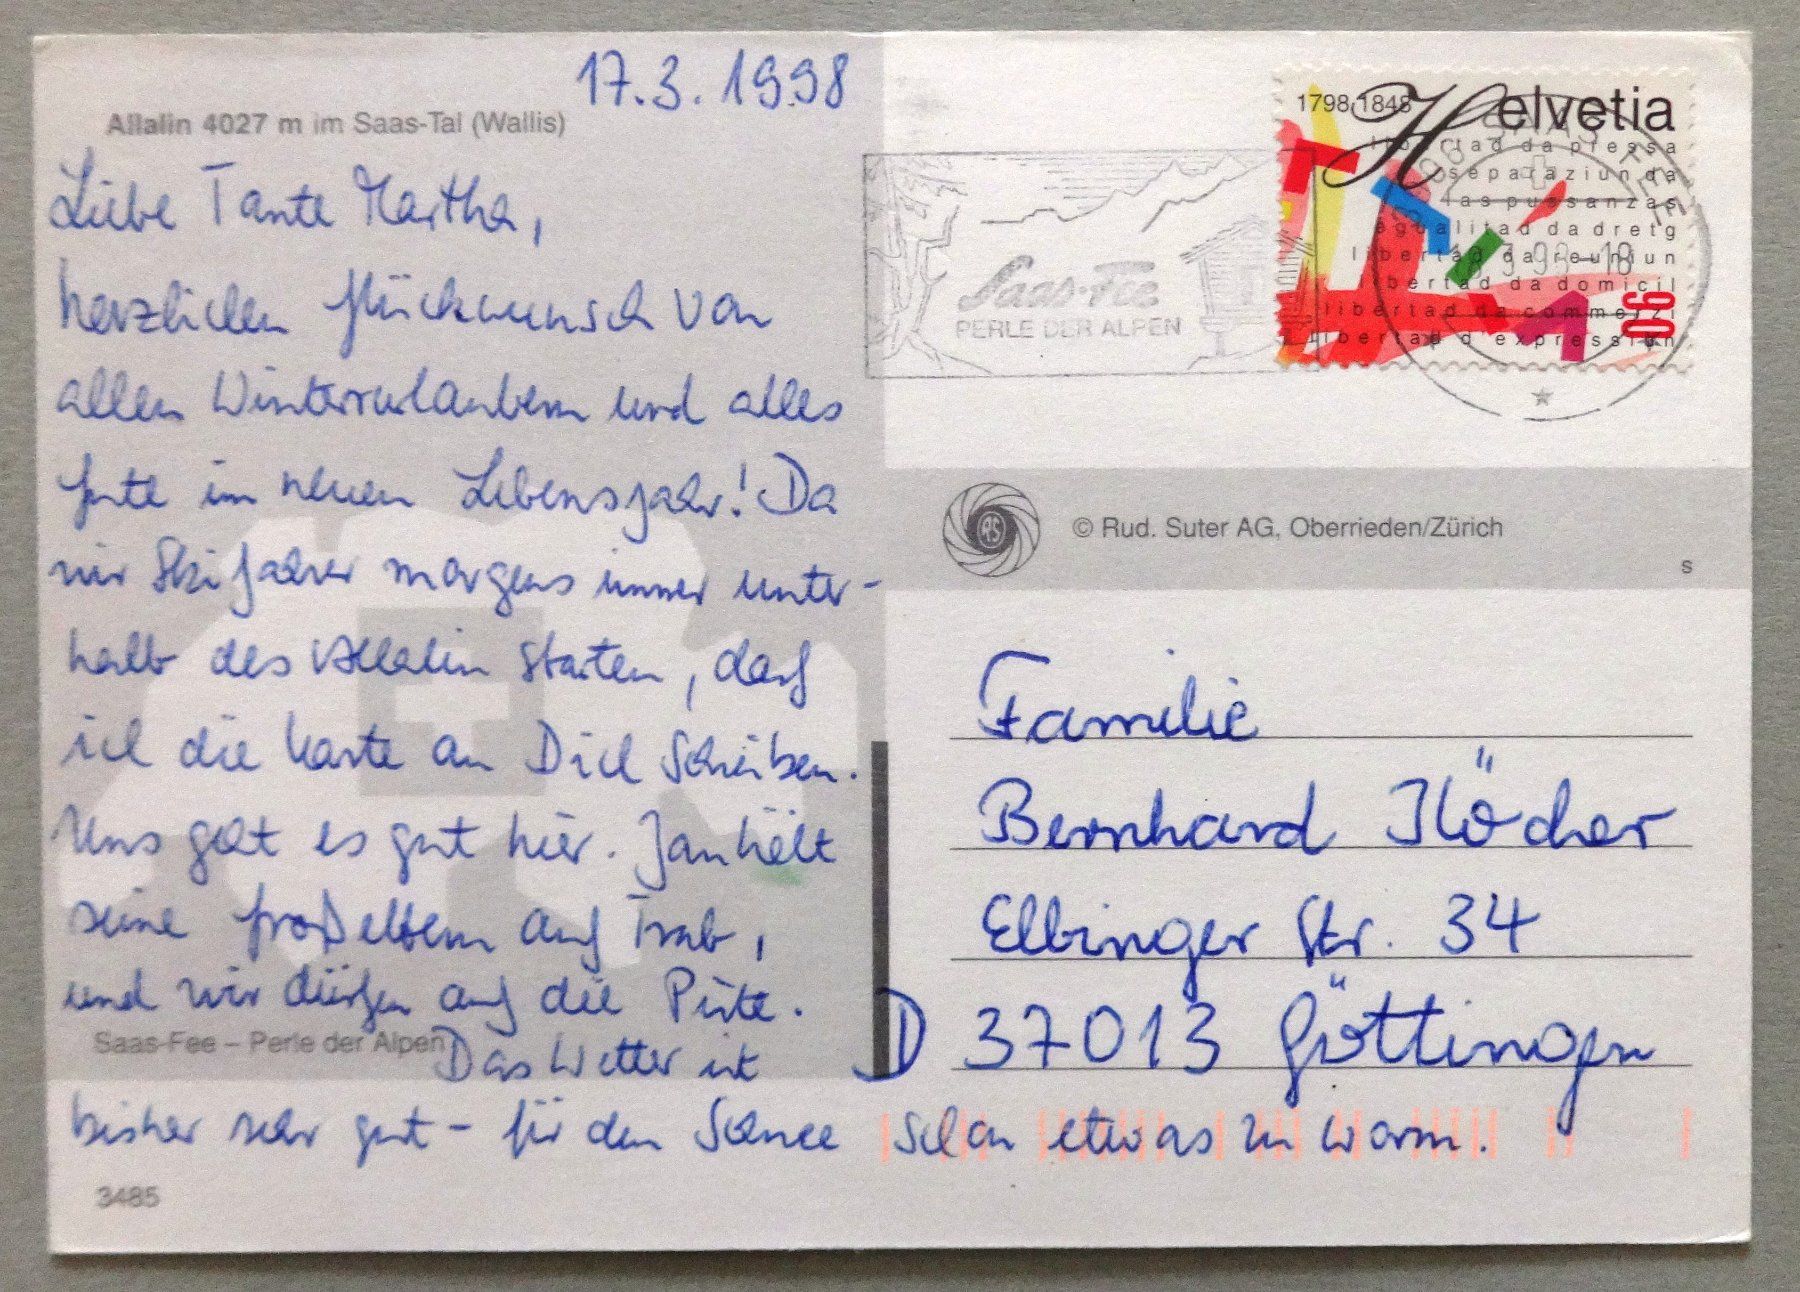 17.3.1998
Allalin 4027 m im Saas-Tal (Wallis)
Liebe Tante Martha,
herzlichen Glückwunsch von
allen Winterurlaubern und alles
Gute im neuen Lebensjahr! Da
wir Skifahrer morgens immer unter-
halb des Allalin starten, darf
ich die Karte an Dich schreiben.
Uns geht es gut hier. Jan hält
seine Großeltern auf Trab,
und wir dürfen auf die Piste.
Saas-Fee – Perle der Alpen
Das Wetter ist
bisher sehr gut – für den Schnee schon etwas zu warm.
3485
Saas-Fee
PERLE DER ALPEN
1798 1848 Helvetia
libertad da pressa
separaziun da
las pussanzas
egualitad da dretg
libertad da reuniun
libertad da domicil
libertad da commerzi
libertad d'expressiun
90
SAAS-FEE
-18
© Rud. Suter AG, Oberrieden/Zürich
RS
s
Familie
Bernhard
Elbinger Str. 34
D 37013 Göttingen